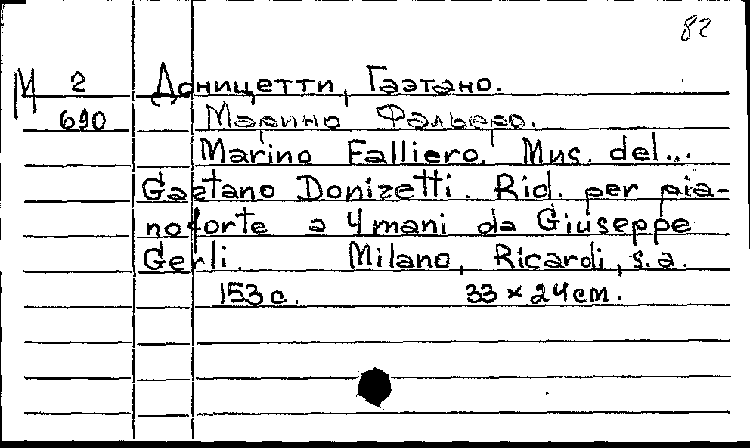 82
М 2 Доницетти, Гаэтано.
690 Марино Фальеро.
Marino Falliero. Mus. del...
Gaetano Donizetti. Rid. per pia-
noforte a 4 mani da Giuseppe
Gerli. Milano, Ricardi, s.a.
153 c. 33 × 24 см.